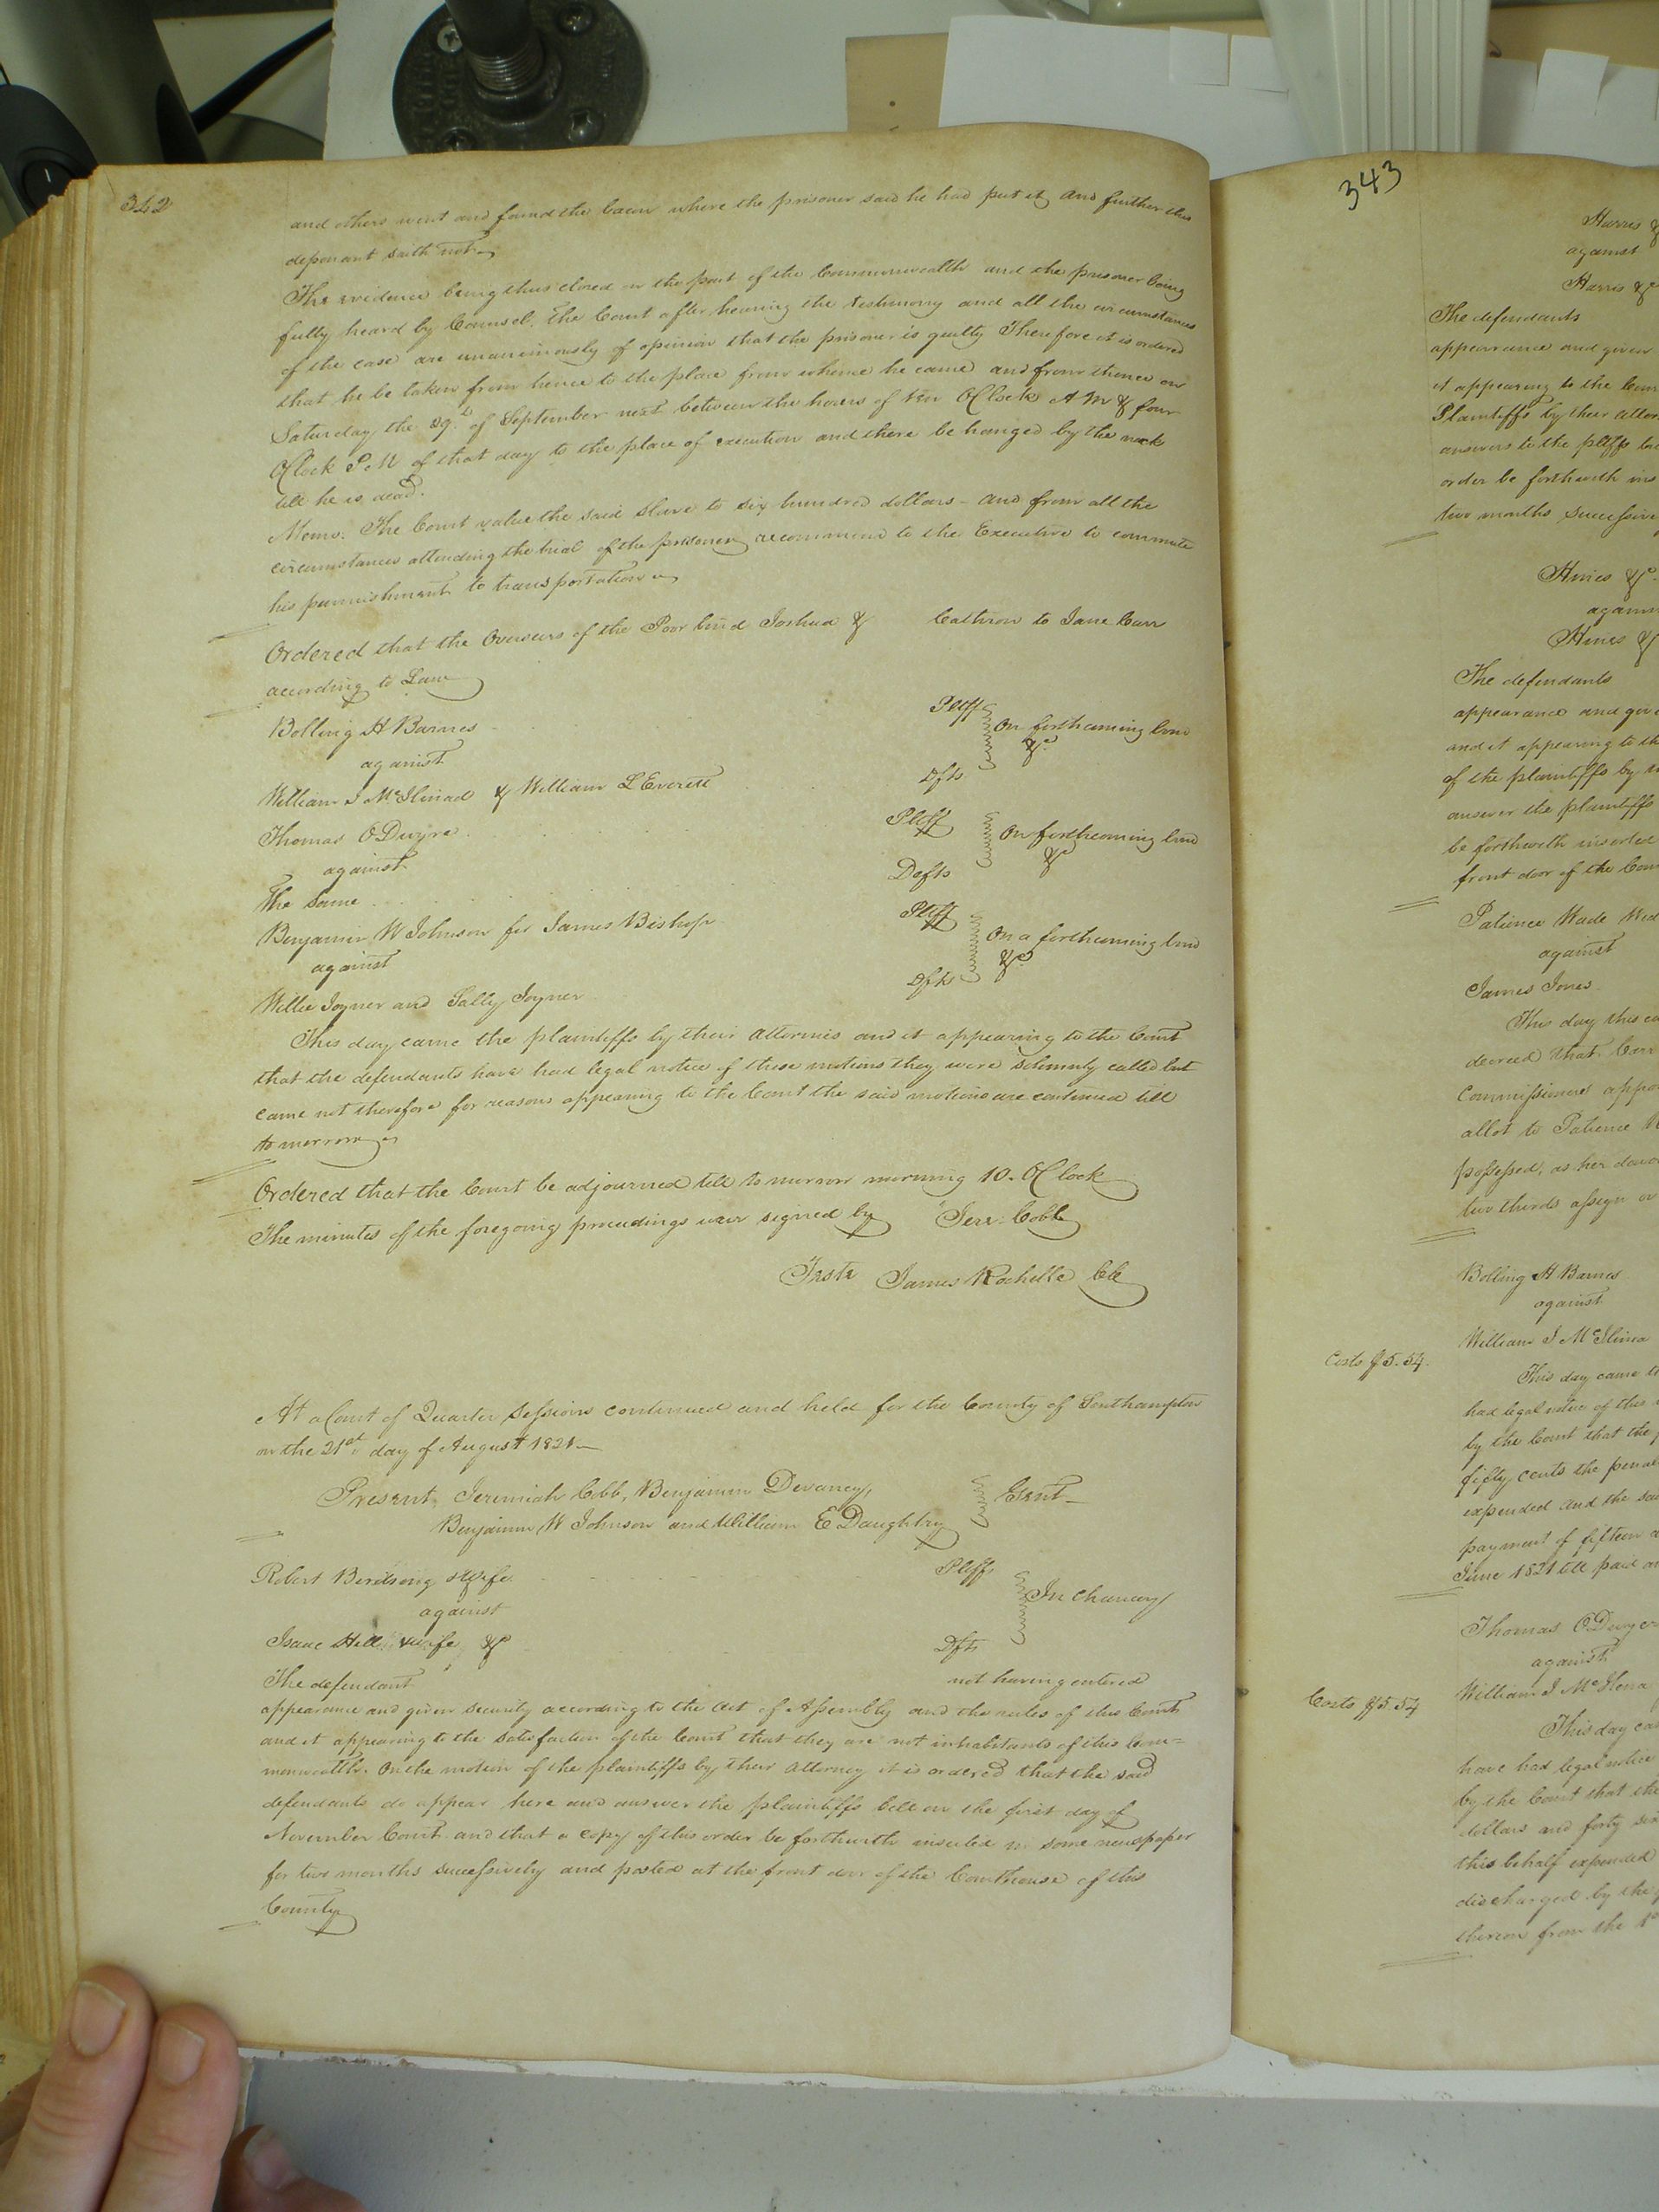 342
and others went and found the bacon where the prisoner said he had put it, and further this
deponant saith not.
The evidence being thus closed on the part of the Commonwealth and the prisoner being
fully heard by Counsel. The Court after hearing the testimony and all the circumstances
of the case are unanimously of opinion that the prisoner is guilty Therefore it is ordered
that he be taken from hence to the place from whence he came and from thence on
Saturday the 29th of September next between the hours of ten OClock A M & four
OClock P. M of that day to the place of execution and there be hanged by the neck
till he is dead.
Memo. The Court value the said Slave to six hundred dollars - and from all the
circumstances attending the trial of the prisoner, recommend to the Executive to commute
his punnishment to transportation
Ordered that the Overseers of the Poor bind Joshua & Cathron to Jane Carr
according to Law
Bolling H Barnes Pltff
against On forthcoming bond &c
William J McIlinad & William L Everett Dfts
Thomas ODwyre Pltff
against On forthcoming bond &c
The Same Defts
Benjamin W Johnson for James Bishop Pltff
against On a forthcoming bond &c
Willie Joyner and Sally Joyner Dfts
This day came the plaintiffs by their attornies and it appearing to the Court
that the defendants have had legal notice of these motions they were solemnly called but
came not therefore for reasons appearing to the Court the said motions are continued till
tomorrow
Ordered that the Court be adjourned till tomorrow morning 10. OClock
The minutes of the foregoing proceedings were signed by Jerr: Cobb
Teste James Rochelle CC
At a Court of Quarter Sessions continued and held for the County of Southampton
on the 21st day of August 1821
Present, Jeremiah Cobb, Benjamin Devaney,
Benjamin W Johnson and William E Daughtry Gent
Robert Birdsong & wife Pltffs
against In Chancery
Isaac Hill & wife &c Dfts
The defendant not having entered
appearance and given security according to the act of Assembly and the rules of this Court
and it appearing to the satisfaction of the Court that they are not inhabitants of this Com=
monwealth. On the motion of the plaintiffs by their attorney it is ordered that the said
defendants do appear here and answer the plaintiffs bill on the first day of
November Court and that a copy of this order be forthwith inserted in some newspaper
for two months successively and posted at the front door of the Courthouse of this
County
343
Harris &
against
Harris &c
The defendants
appearance and given
it appearing to the Cour
Plaintiffs by their attor
answers to the pltffs
order be forthwith ins
two months successive
Hines &c.
again
Hines &
The defendants
appearance and giv
and it appearing to th
of the plaintiffs by
answer the plaintiffs
be forthwith inserted
front door of the Cou
Patience Wade Wid
against
James Jones
This day this ca
decreed that
Commissioners appo
allot to Patience W
possessed, as her dow
two thirds assign
Bolling H Barnes
against
William J McIlinva
Costs $5.54.
This day came th
had legal notice of this
by the Court that the p
fifty cents the penal
expended and the sai
payment of fifteen
June 1821 till paid an
Thomas ODwyer
against
William J McIlvna
Costs $5.54
This day ca
have had legal notice
by the Court that the
dollars and forty six
this behalf expended
discharged by the p
thereon from the 1st